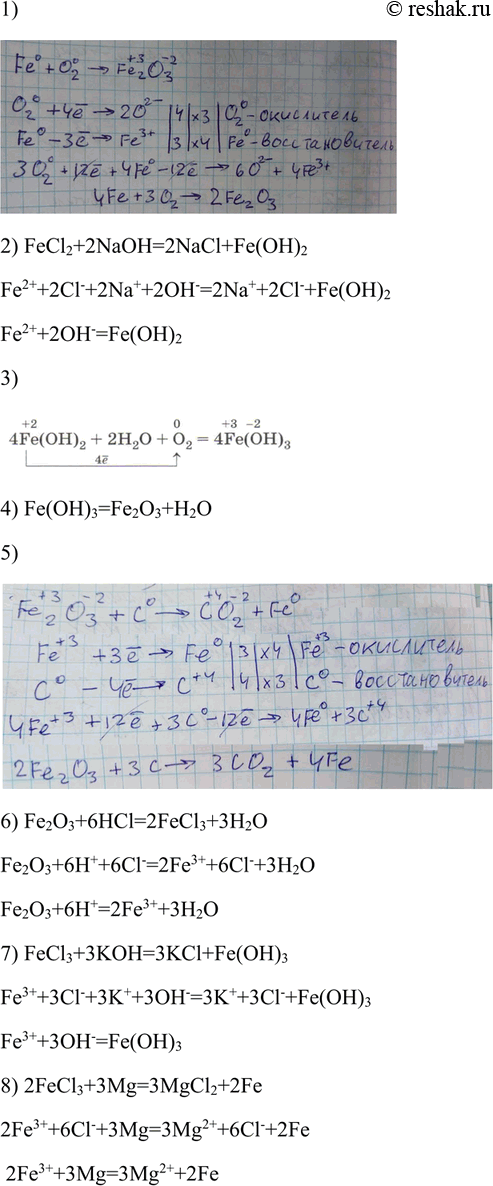 © reshak.ru
1)
Fe⁰ + O₂⁰ → Fe₂⁺³O₃⁻²
O₂⁰ + 4ē → 2O²⁻ | 4 | ×3 | O₂⁰ - окислитель
Fe⁰ - 3ē → Fe³⁺ | 3 | ×4 | Fe⁰ - восстановитель
3O₂⁰ + 12ē + 4Fe⁰ - 12ē → 6O²⁻ + 4Fe³⁺
4Fe + 3O₂ → 2Fe₂O₃
2) FeCl₂+2NaOH=2NaCl+Fe(OH)₂
Fe²⁺+2Cl⁻+2Na⁺+2OH⁻=2Na⁺+2Cl⁻+Fe(OH)₂
Fe²⁺+2OH⁻=Fe(OH)₂
3)
+2 0 +3 -2
4Fe(OH)₂ + 2H₂O + O₂ = 4Fe(OH)₃
4ē
4) Fe(OH)₃=Fe₂O₃+H₂O
5)
Fe₂⁺³O₃⁻² + C⁰ → C⁺⁴O₂⁻² + Fe⁰
Fe⁺³ + 3ē → Fe⁰ | 3 | ×4 | Fe⁺³ - окислитель
C⁰ - 4ē → C⁺⁴ | 4 | ×3 | C⁰ - восстановитель
4Fe⁺³ + 12ē + 3C⁰ - 12ē → 4Fe⁰ + 3C⁺⁴
2Fe₂O₃ + 3C → 3CO₂ + 4Fe
6) Fe₂O₃+6HCl=2FeCl₃+3H₂O
Fe₂O₃+6H⁺+6Cl⁻=2Fe³⁺+6Cl⁻+3H₂O
Fe₂O₃+6H⁺=2Fe³⁺+3H₂O
7) FeCl₃+3KOH=3KCl+Fe(OH)₃
Fe³⁺+3Cl⁻+3K⁺+3OH⁻=3K⁺+3Cl⁻+Fe(OH)₃
Fe³⁺+3OH⁻=Fe(OH)₃
8) 2FeCl₃+3Mg=3MgCl₂+2Fe
2Fe³⁺+6Cl⁻+3Mg=3Mg²⁺+6Cl⁻+2Fe
2Fe³⁺+3Mg=3Mg²⁺+2Fe